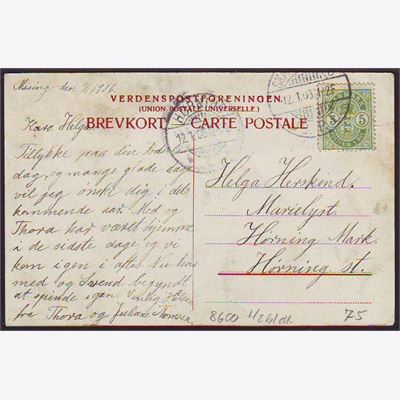 Mising den 9/1 1906.
VERDENSPOSTFORENINGEN
(UNION POSTALE UNIVERSELLE.)
BREVKORT CARTE POSTALE
Kære Helga
Tillykke paa din
dag, og mange glade aar
vil jeg ønske dig i det
kommende aar. Med og
Thora har været hjemme
i de sidste dage og vi
kom igen i aftes. Nu har
med og Svend begyndt
at spinde igen. Venlig Hilsen
fra Thora og Juliane Thomsen
Helga Herskind.
Marielyst.
Hørning Mark.
Hørning st.
5 5
8600 1/2bl.dl. 75